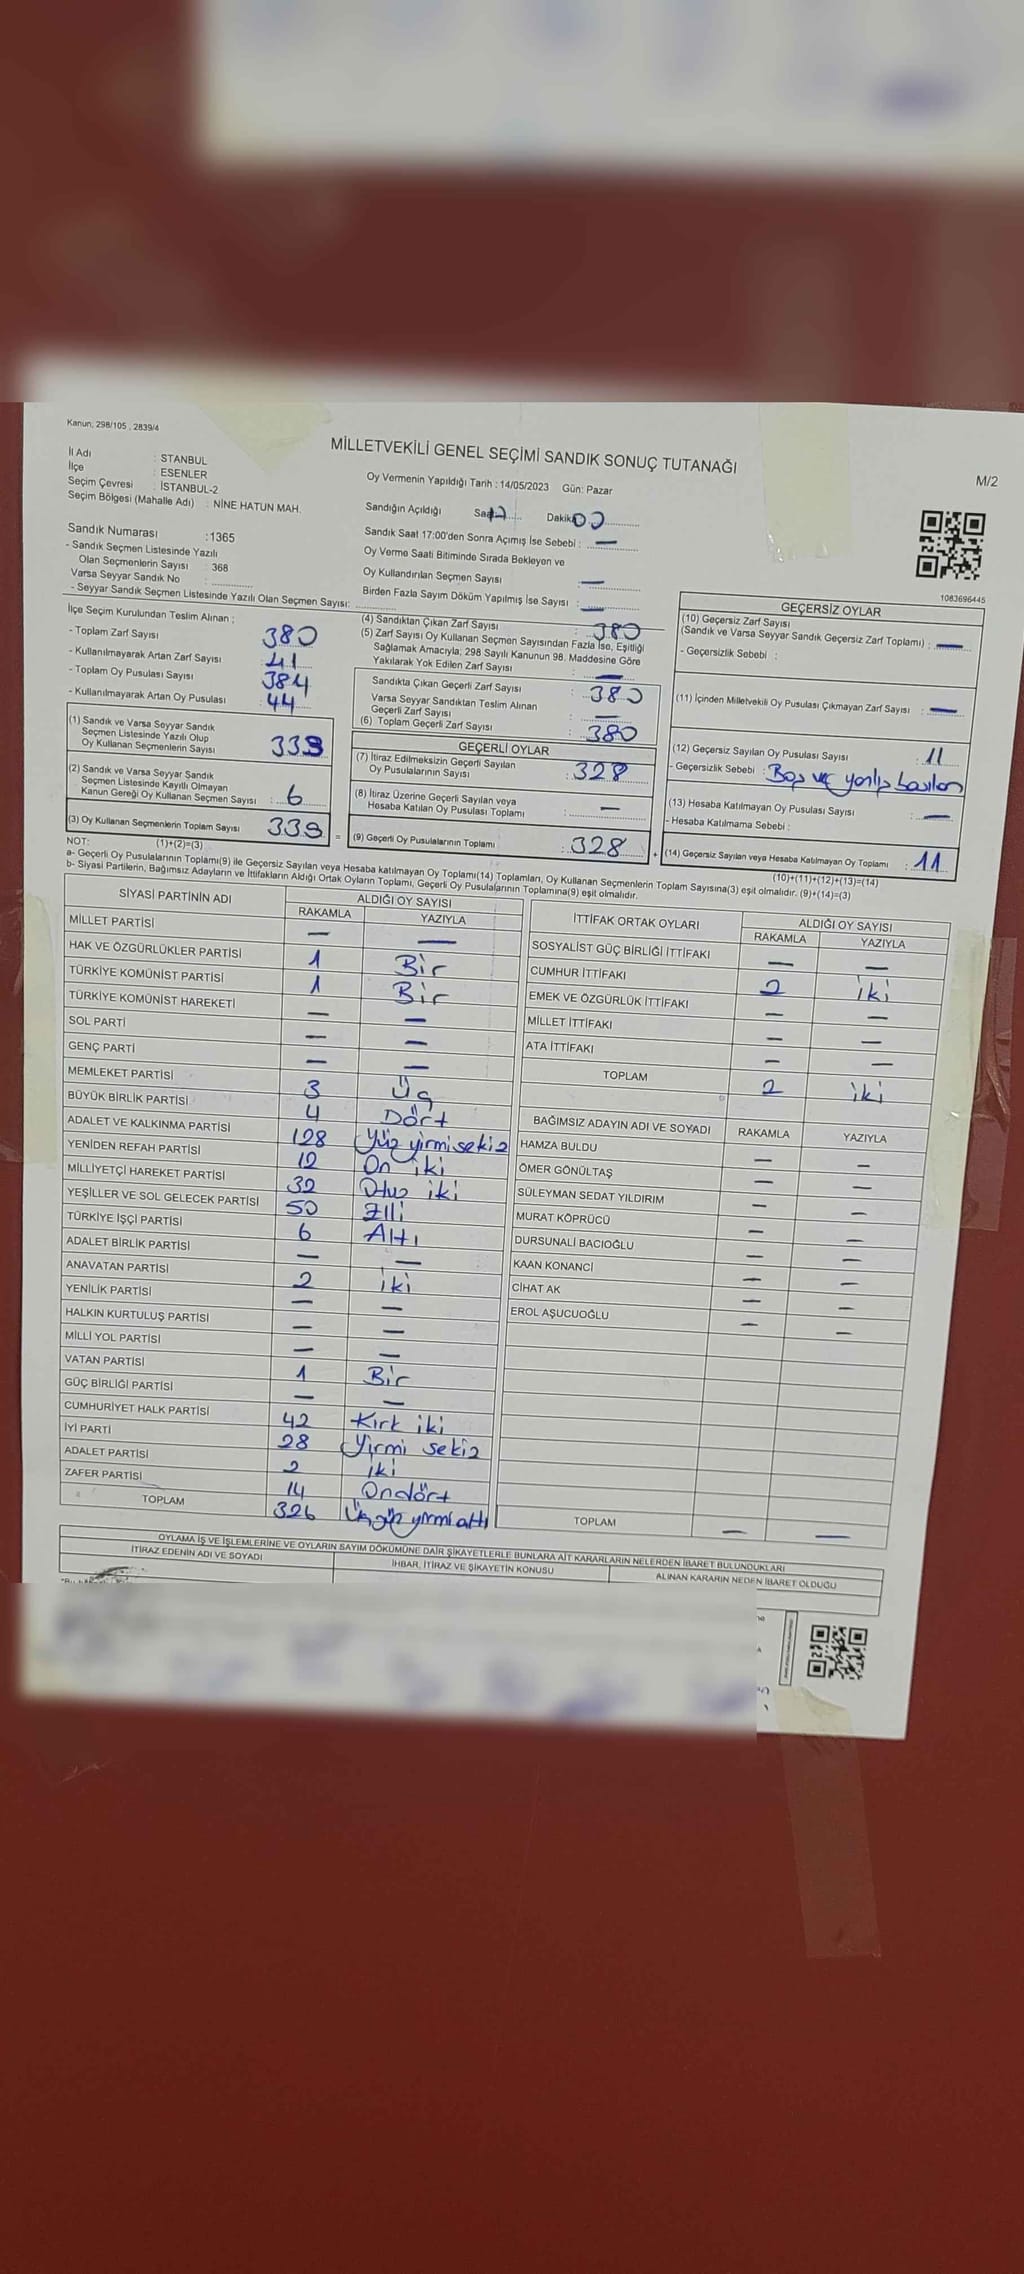 Kanun, 298/105 , 2839/4
MİLLETVEKİLİ GENEL SEÇİMİ SANDIK SONUÇ TUTANAĞI
M/2
İl Adı : STANBUL
İlçe : ESENLER
Seçim Çevresi : İSTANBUL-2
Seçim Bölgesi (Mahalle Adı) : NİNE HATUN MAH.
Sandık Numarası :1365
- Sandık Seçmen Listesinde Yazılı
Olan Seçmenlerin Sayısı : 368
Varsa Seyyar Sandık No :
- Seyyar Sandık Seçmen Listesinde Yazılı Olan Seçmen Sayısı:
Oy Vermenin Yapıldığı Tarih : 14/05/2023 Gün: Pazar
Sandığın Açıldığı Saat Dakika 00
Sandık Saat 17:00'den Sonra Açımış İse Sebebi : —
Oy Verme Saati Bitiminde Sırada Bekleyen ve
Oy Kullandırılan Seçmen Sayısı : —
Birden Fazla Sayım Döküm Yapılmış İse Sayısı : —
1083696445
İlçe Seçim Kurulundan Teslim Alınan ;
- Toplam Zarf Sayısı : 380
- Kullanılmayarak Artan Zarf Sayısı : 41
- Toplam Oy Pusulası Sayısı : 384
- Kullanılmayarak Artan Oy Pusulası : 44
(1) Sandık ve Varsa Seyyar Sandık
Seçmen Listesinde Yazılı Olup
Oy Kullanan Seçmenlerin Sayısı : 333
(2) Sandık ve Varsa Seyyar Sandık
Seçmen Listesinde Kayıtlı Olmayan
Kanun Gereği Oy Kullanan Seçmen Sayısı : 6
(3) Oy Kullanan Seçmenlerin Toplam Sayısı : 339
(1)+(2)=(3)
(4) Sandıktan Çıkan Zarf Sayısı : 380
(5) Zarf Sayısı Oy Kullanan Seçmen Sayısından Fazla İse, Eşitliği
Sağlamak Amacıyla, 298 Sayılı Kanunun 98. Maddesine Göre
Yakılarak Yok Edilen Zarf Sayısı : —
Sandıkta Çıkan Geçerli Zarf Sayısı : 380
Varsa Seyyar Sandıktan Teslim Alınan
Geçerli Zarf Sayısı : —
(6) Toplam Geçerli Zarf Sayısı : 380
GEÇERLİ OYLAR
(7) İtiraz Edilmeksizin Geçerli Sayılan
Oy Pusulalarının Sayısı : 328
(8) İtiraz Üzerine Geçerli Sayılan veya
Hesaba Katılan Oy Pusulası Toplamı : —
= (9) Geçerli Oy Pusulalarının Toplamı : 328
GEÇERSİZ OYLAR
(10) Geçersiz Zarf Sayısı
(Sandık ve Varsa Seyyar Sandık Geçersiz Zarf Toplamı) : —
- Geçersizlik Sebebi :
(11) İçinden Milletvekili Oy Pusulası Çıkmayan Zarf Sayısı : —
(12) Geçersiz Sayılan Oy Pusulası Sayısı : 11
- Geçersizlik Sebebi : Boş ve yanlış basılan
(13) Hesaba Katılmayan Oy Pusulası Sayısı : —
- Hesaba Katılmama Sebebi :
+ (14) Geçersiz Sayılan veya Hesaba Katılmayan Oy Toplamı : 11
(10)+(11)+(12)+(13)=(14)
NOT:
a- Geçerli Oy Pusulalarının Toplamı(9) ile Geçersiz Sayılan veya Hesaba katılmayan Oy Toplamı(14) Toplamları, Oy Kullanan Seçmenlerin Toplam Sayısına(3) eşit olmalıdır. (9)+(14)=(3)
b- Siyasi Partilerin, Bağımsız Adayların ve İttifakların Aldığı Ortak Oyların Toplamı, Geçerli Oy Pusulalarının Toplamına(9) eşit olmalıdır.
SİYASİ PARTİNİN ADI ALDIĞI OY SAYISI
RAKAMLA YAZIYLA
MİLLET PARTİSİ — —
HAK VE ÖZGÜRLÜKLER PARTİSİ 1 Bir
TÜRKİYE KOMÜNİST PARTİSİ 1 Bir
TÜRKİYE KOMÜNİST HAREKETİ — —
SOL PARTİ — —
GENÇ PARTİ — —
MEMLEKET PARTİSİ 3 Üç
BÜYÜK BİRLİK PARTİSİ 4 Dört
ADALET VE KALKINMA PARTİSİ 128 Yüz yirmi sekiz
YENİDEN REFAH PARTİSİ 12 On iki
MİLLİYETÇİ HAREKET PARTİSİ 32 Otuz iki
YEŞİLLER VE SOL GELECEK PARTİSİ 50 Elli
TÜRKİYE İŞÇİ PARTİSİ 6 Altı
ADALET BİRLİK PARTİSİ — —
ANAVATAN PARTİSİ 2 iki
YENİLİK PARTİSİ — —
HALKIN KURTULUŞ PARTİSİ — —
MİLLİ YOL PARTİSİ — —
VATAN PARTİSİ 1 Bir
GÜÇ BİRLİĞİ PARTİSİ — —
CUMHURİYET HALK PARTİSİ 42 Kırk iki
İYİ PARTİ 28 Yirmi sekiz
ADALET PARTİSİ 2 iki
ZAFER PARTİSİ 14 Ondört
TOPLAM 326 Üçyüz yirmi altı
İTTİFAK ORTAK OYLARI ALDIĞI OY SAYISI
RAKAMLA YAZIYLA
SOSYALİST GÜÇ BİRLİĞİ İTTİFAKI — —
CUMHUR İTTİFAKI 2 iki
EMEK VE ÖZGÜRLÜK İTTİFAKI — —
MİLLET İTTİFAKI — —
ATA İTTİFAKI — —
TOPLAM 2 iki
BAĞIMSIZ ADAYIN ADI VE SOYADI RAKAMLA YAZIYLA
HAMZA BULDU — —
ÖMER GÖNÜLTAŞ — —
SÜLEYMAN SEDAT YILDIRIM — —
MURAT KÖPRÜCÜ — —
DURSUNALİ BACIOĞLU — —
KAAN KONANCİ — —
CİHAT AK — —
EROL AŞUCUOĞLU — —
TOPLAM — —
OYLAMA İŞ VE İŞLEMLERİNE VE OYLARIN SAYIM DÖKÜMÜNE DAİR ŞİKAYETLERLE BUNLARA AİT KARARLARIN NELERDEN İBARET BULUNDUKLARI
İTİRAZ EDENİN ADI VE SOYADI İHBAR, İTİRAZ VE ŞİKAYETİN KONUSU ALINAN KARARIN NEDEN İBARET OLDUĞU